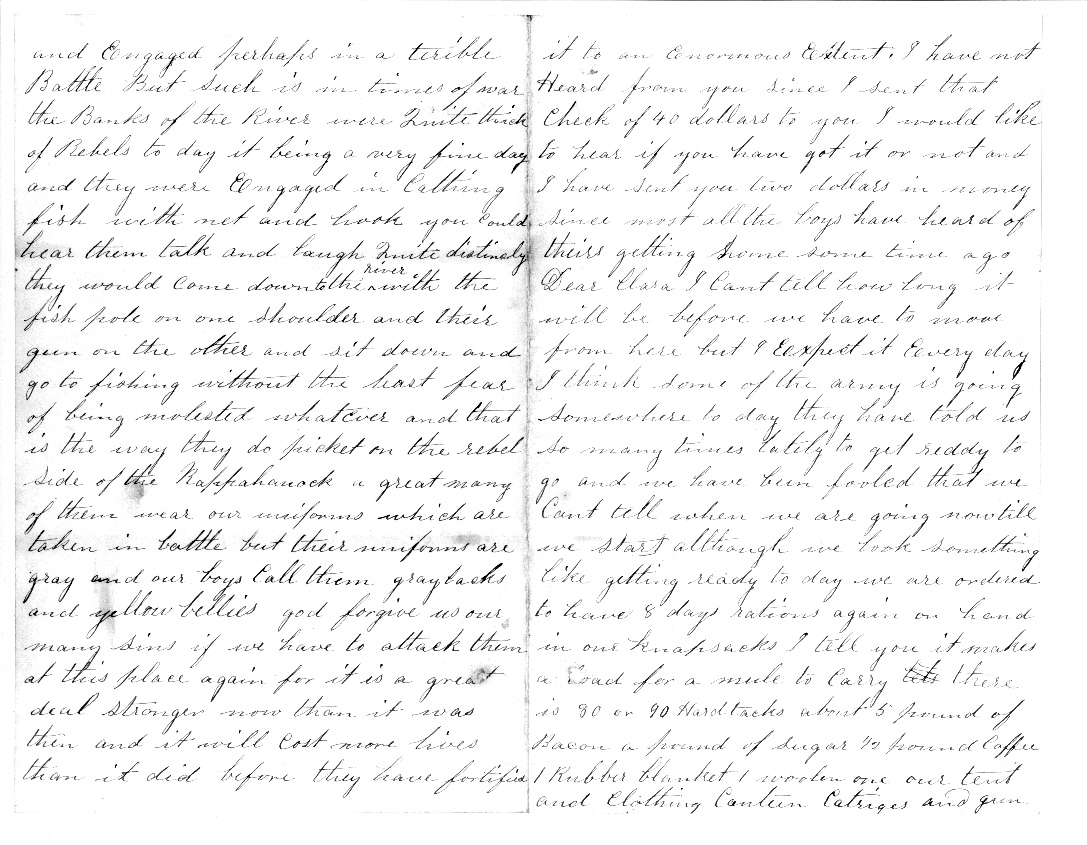 and Engaged perhaps in a terible
Battle But such is in times of war
the Banks of the River were Quite thick
of Rebels to day it being a very fine day
and they were Engaged in Cathing
fish with net and hook you could
hear them talk and laugh Quite distincly
they would come down to the river with the
fish pole on one shoulder and their
gun on the other and sit down and
go to fishing without the least fear
of being molested whatever and that
is the way they do picket on the rebel
side of the Rappahanock a great many
of them wear our uniforms which are
taken in battle but their uniforms are
gray and our boys Call them graybacks
and yellow bellies god forgive us our
many sins if we have to attack them
at this place again for it is a great
deal stronger now than it was
then and it will cost more lives
than it did before they have fortified
it to an Enormous Extent. I have not
Heard from you since I sent that
Check of 40 dollars to you I would like
to hear if you have got it or not and
I have sent you two dollars in money
since most all the boys have heard of
theirs getting home some time ago
Dear Clara I Cant tell how long it
will be before we have to move
from here but I Eexpect it Eevery day
I think some of the army is going
somewhere to day they have told us
so many times latily to get reddy to
go and we have been fooled that we
Cant tell when we are going now till
we start although we look something
like getting ready to day we are ordered
to have 8 days rations again on hand
in our knapsacks I tell you it makes
a Load for a mule to Carry there
is 80 or 90 Hardtacks about 5 pound of
Bacon a pound of sugar 1/2 pound Coffee
1 Rubber blanket 1 woolen one our tent
and Clothing Canteen Catriges and gun